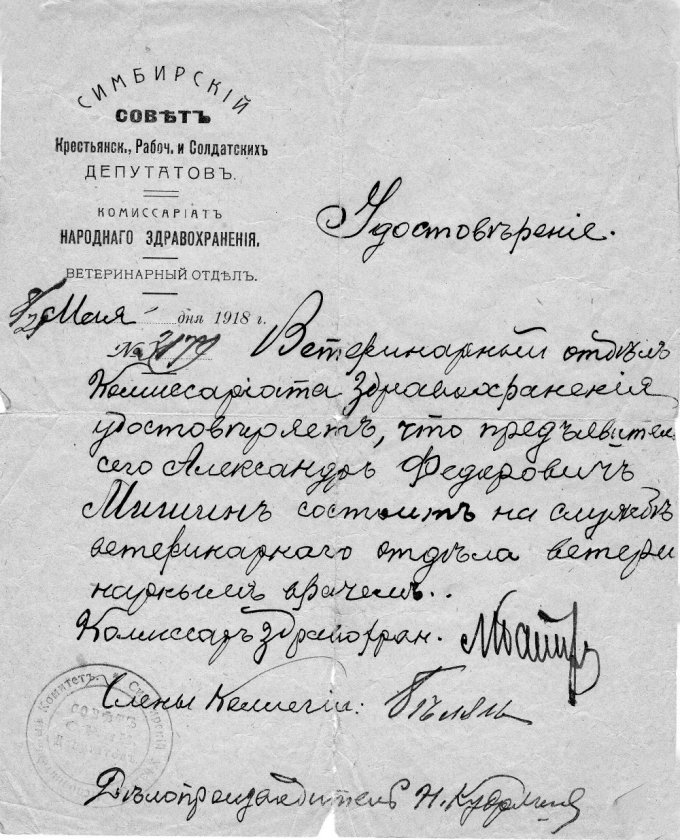 СИМБИРСКІЙ
СОВѢТЪ
Крестьянск., Рабоч. и Солдатскихъ
ДЕПУТАТОВЪ.
КОМИССАРІАТЪ
НАРОДНАГО ЗДРАВОХРАНЕНІЯ.
ВЕТЕРИНАРНЫЙ ОТДѢЛЪ.
Удостовѣреніе.
8/21 Мая дня 1918 г.
№ Ветеринарный отдѣлъ
Комиссаріата Здравоохраненія
удостовѣряетъ, что предъявител
сего Александръ Федоровичъ
состоитъ на службѣ
ветеринарнаго отдѣла ветери
нарнымъ врачемъ..
Комиссаръ Здравохран.
Члены Коллегіи:
Дѣлопроизводитель Н.
Комитетъ. Симбирскій
СОВѢТЪ